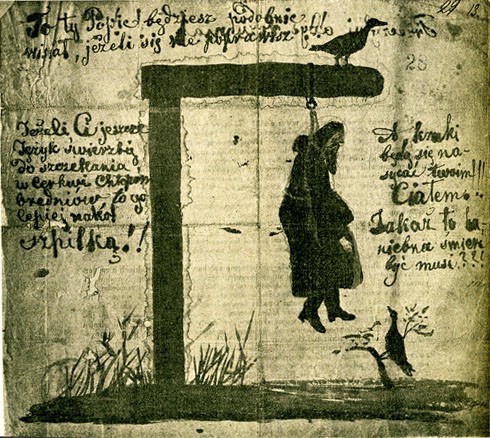 29 13.
To ty Popie! będziesz podobnie
wisiał, jeżeli się nie poprawisz
28
Jeżeli Ci jeszcze
Język swierzbą
Do szczekania
w Cerkwi
bredniów, to go
lepiej nakol
szpilką!!
A kruki
będą się na-
sycać twoim!!!
Ciałem.
Jakaż to ha-
niebna smierc
być musi???